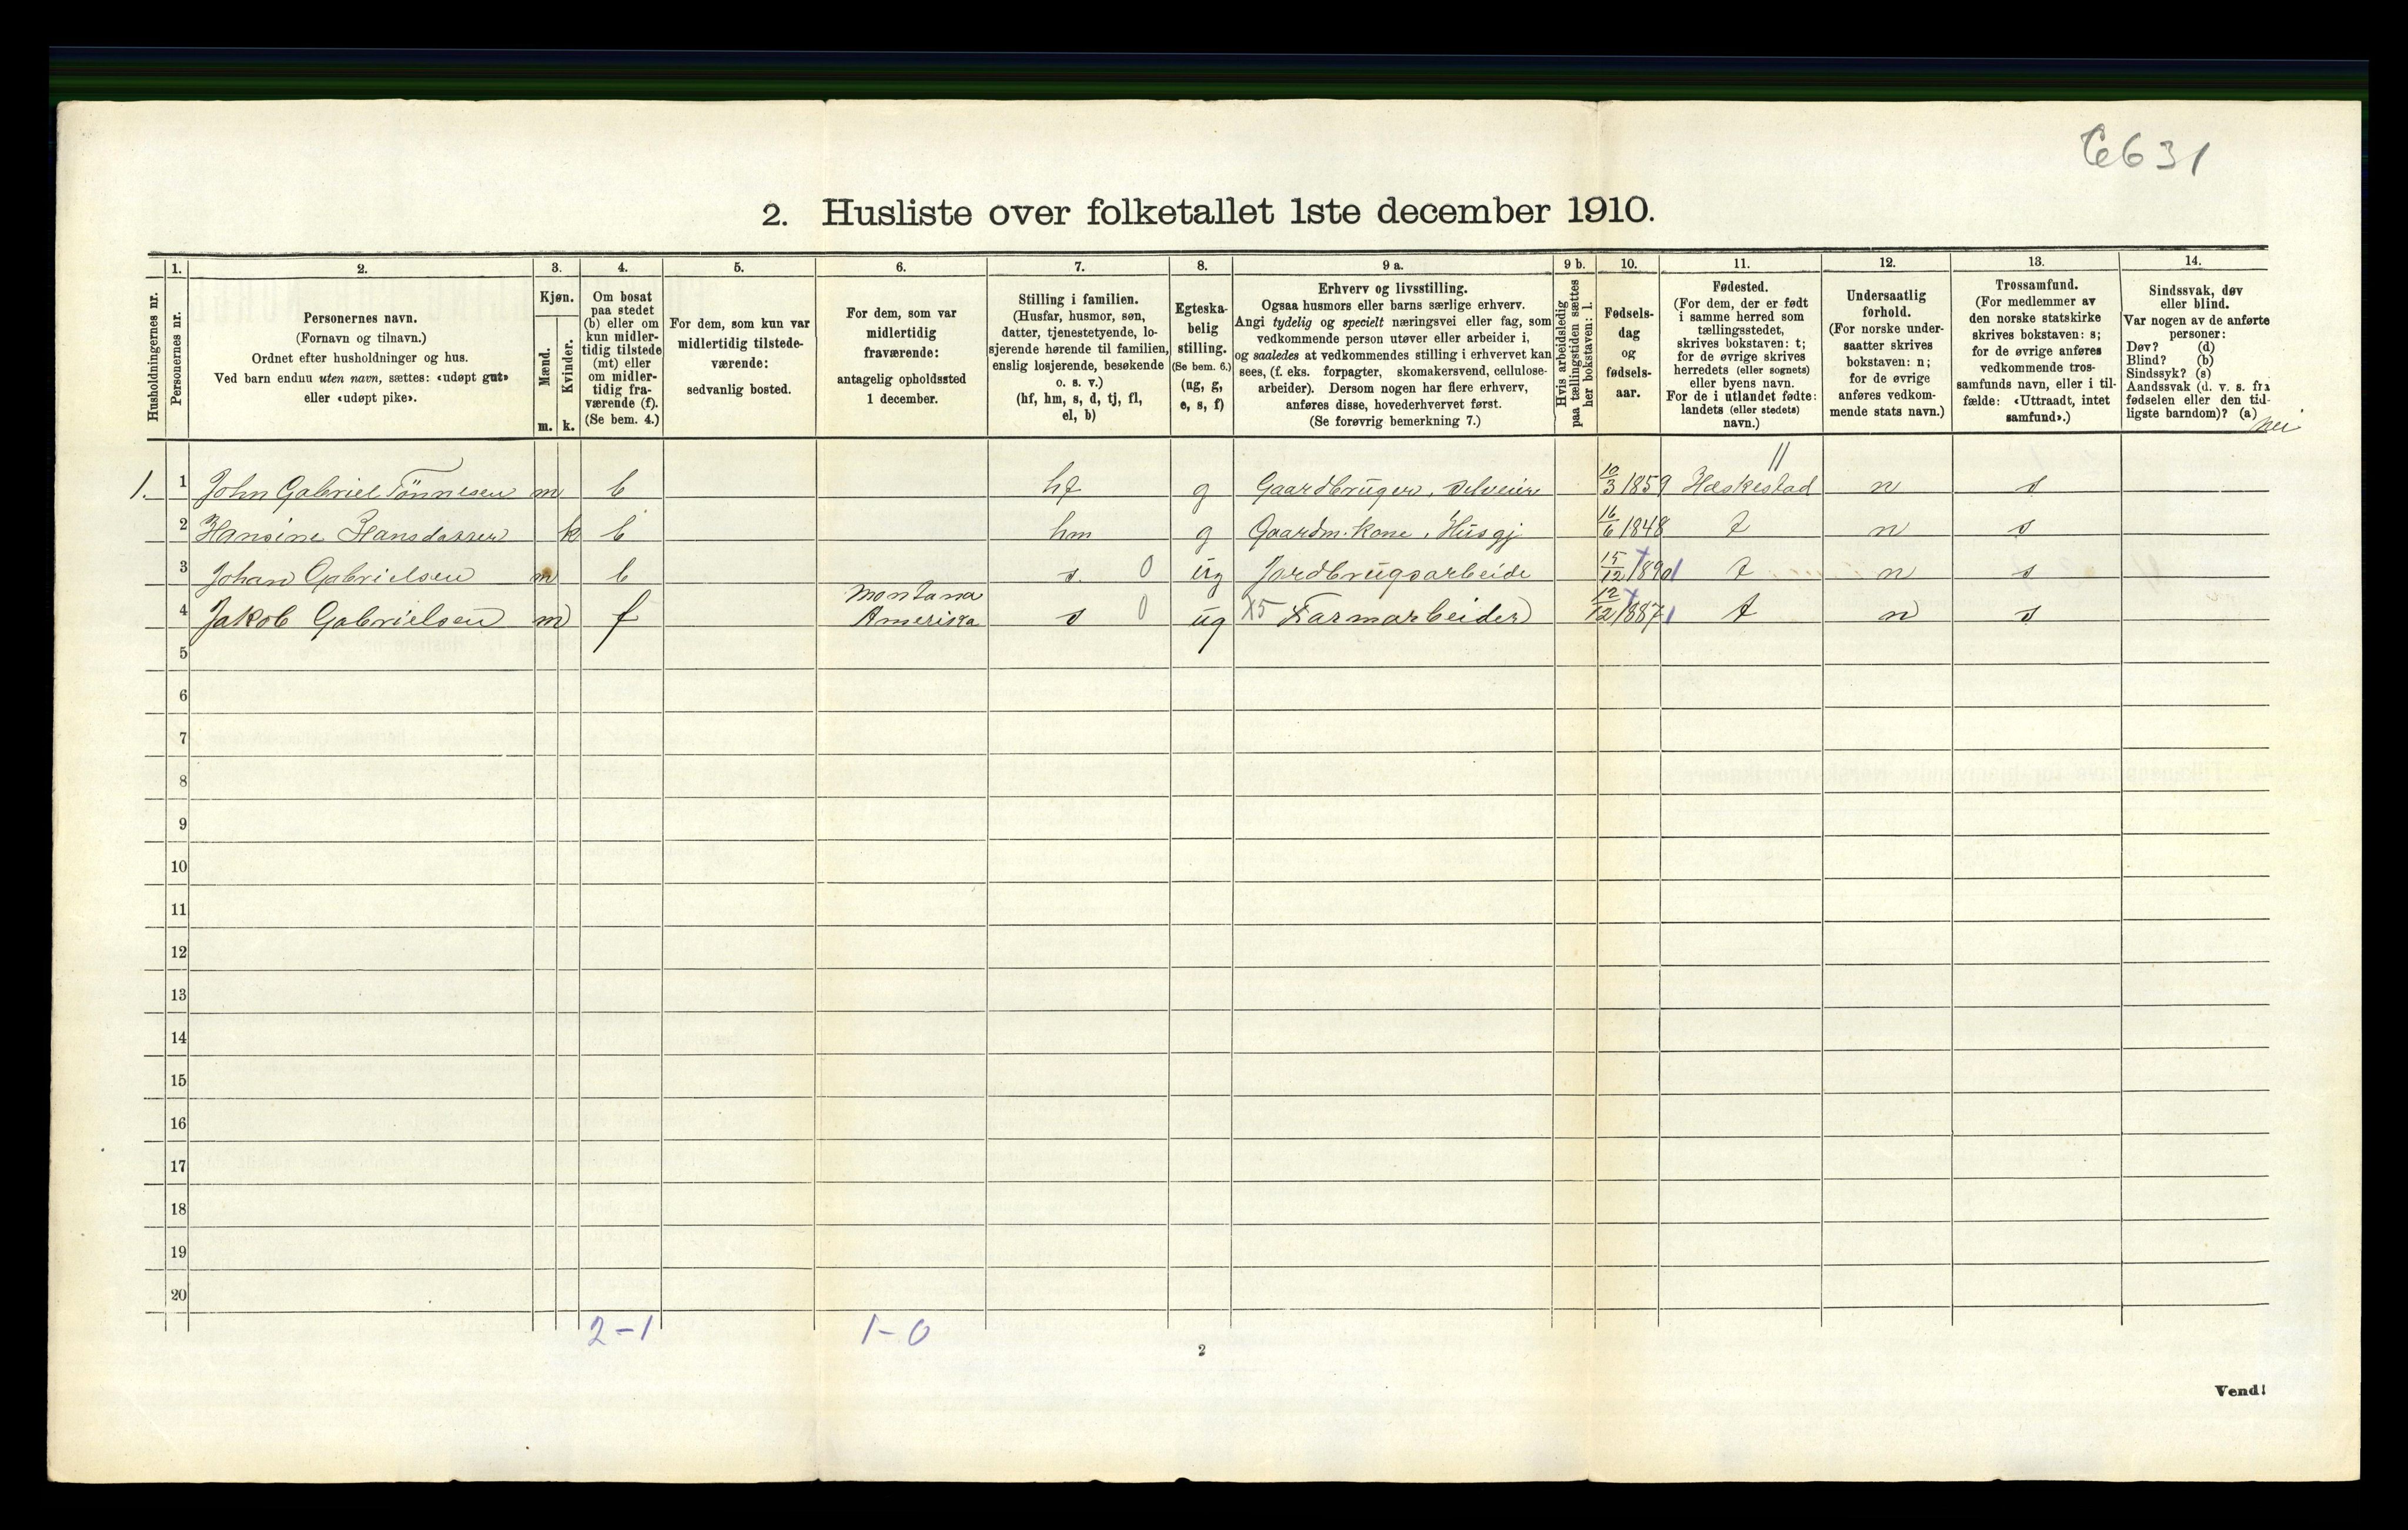 C631
2. Husliste over folketallet 1ste december 1910.
Husholdningernes nr.
1.
Personernes nr.
2.
Personernes navn.
(Fornavn og tilnavn.)
Ordnet efter husholdninger og hus.
Ved barn endnu uten navn, sættes: «udøpt gut»
eller «udøpt pike».
3.
Kjøn.
Mænd.
m.
Kvinder.
k.
4.
Om bosat
paa stedet
(b) eller om
kun midler-
tidig tilstede
(mt) eller
om midler-
tidig fra-
værende (f).
(Se bem. 4.)
5.
For dem, som kun var
midlertidig tilstede-
værende:
sedvanlig bosted.
6.
For dem, som var
midlertidig
fraværende:
antagelig opholdssted
1 december.
7.
Stilling i familien.
(Husfar, husmor, søn,
datter, tjenestetyende, lo-
sjerende hørende til familien,
enslig losjerende, besøkende
o. s. v.)
(hf, hm, s, d, tj, fl,
el, b)
8.
Egteska-
belig
stilling.
(Se bem. 6.)
(ug, g,
e, s, f)
9 a.
Erhverv og livsstilling.
Ogsaa husmors eller barns særlige erhverv.
Angi tydelig og specielt næringsvei eller fag, som
vedkommende person utøver eller arbeider i,
og saaledes at vedkommendes stilling i erhvervet kan
sees, (f. eks. forpagter, skomakersvend, cellulose-
arbeider). Dersom nogen har flere erhverv,
anføres disse, hovederhvervet først.
(Se forøvrig bemerkning 7.)
9 b.
Hvis arbeidsledig
paa tællingstiden sættes
her bokstaven: l.
10.
Fødsels-
dag
og
fødsels-
aar.
11.
Fødested.
(For dem, der er født
i samme herred som
tællingsstedet,
skrives bokstaven: t;
for de øvrige skrives
herredets (eller sognets)
eller byens navn.
For de i utlandet fødte:
landets (eller stedets)
navn.)
12.
Undersaatlig
forhold.
(For norske under-
saatter skrives
bokstaven: n;
for de øvrige
anføres vedkom-
mende stats navn.)
13.
Trossamfund.
(For medlemmer av
den norske statskirke
skrives bokstaven: s;
for de øvrige anføres
vedkommende tros-
samfunds navn, eller i til-
fælde: «Uttraadt, intet
samfund».)
14.
Sindssvak, døv
eller blind.
Var nogen av de anførte
personer:
Døv? (d)
Blind? (b)
Sindssyk? (s)
Aandssvak (d. v. s. fra
fødselen eller den tid-
ligste barndom)? (a)
nei
11
1. 1 John Gabriel Tönnesen m b hf g Gaardbruger, Selveier 10/3 1859 Hæskestad n s
2 Hansine Hansdatter k b hm g Gaardm. kone, Husgj 16/6 1848 t n s
3 Johan Gabrielsen m b s. 0 ug Jordbrugsarbeide 15/12 1890 t n s
Montana
4 Jakob Gabrielsen m f Ameriska s 0 ug X5 Farmarbeider 12/12 1887 t n s
5
6
7
8
9
10
11
12
13
14
15
16
17
18
19
20
2-1 1-0
2
Vend!